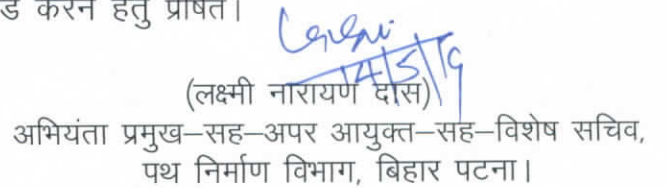 ड करने हेतु प्रेषित।
14/5/19
(लक्ष्मी नारायण दास)
अभियंता प्रमुख–सह–अपर आयुक्त–सह–विशेष सचिव,
पथ निर्माण विभाग, बिहार पटना।